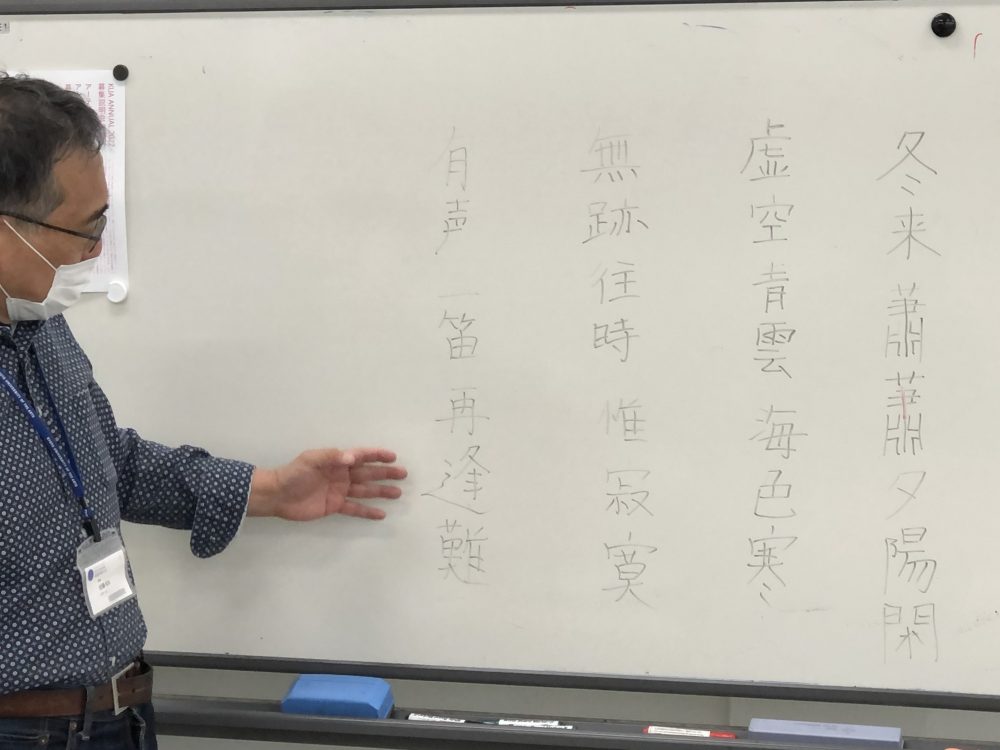 冬来蕭蕭夕陽閑
虚空青雲海色寒
無跡往時惟寂寞
有声一笛再逢難
KUA ANNUAL 2022